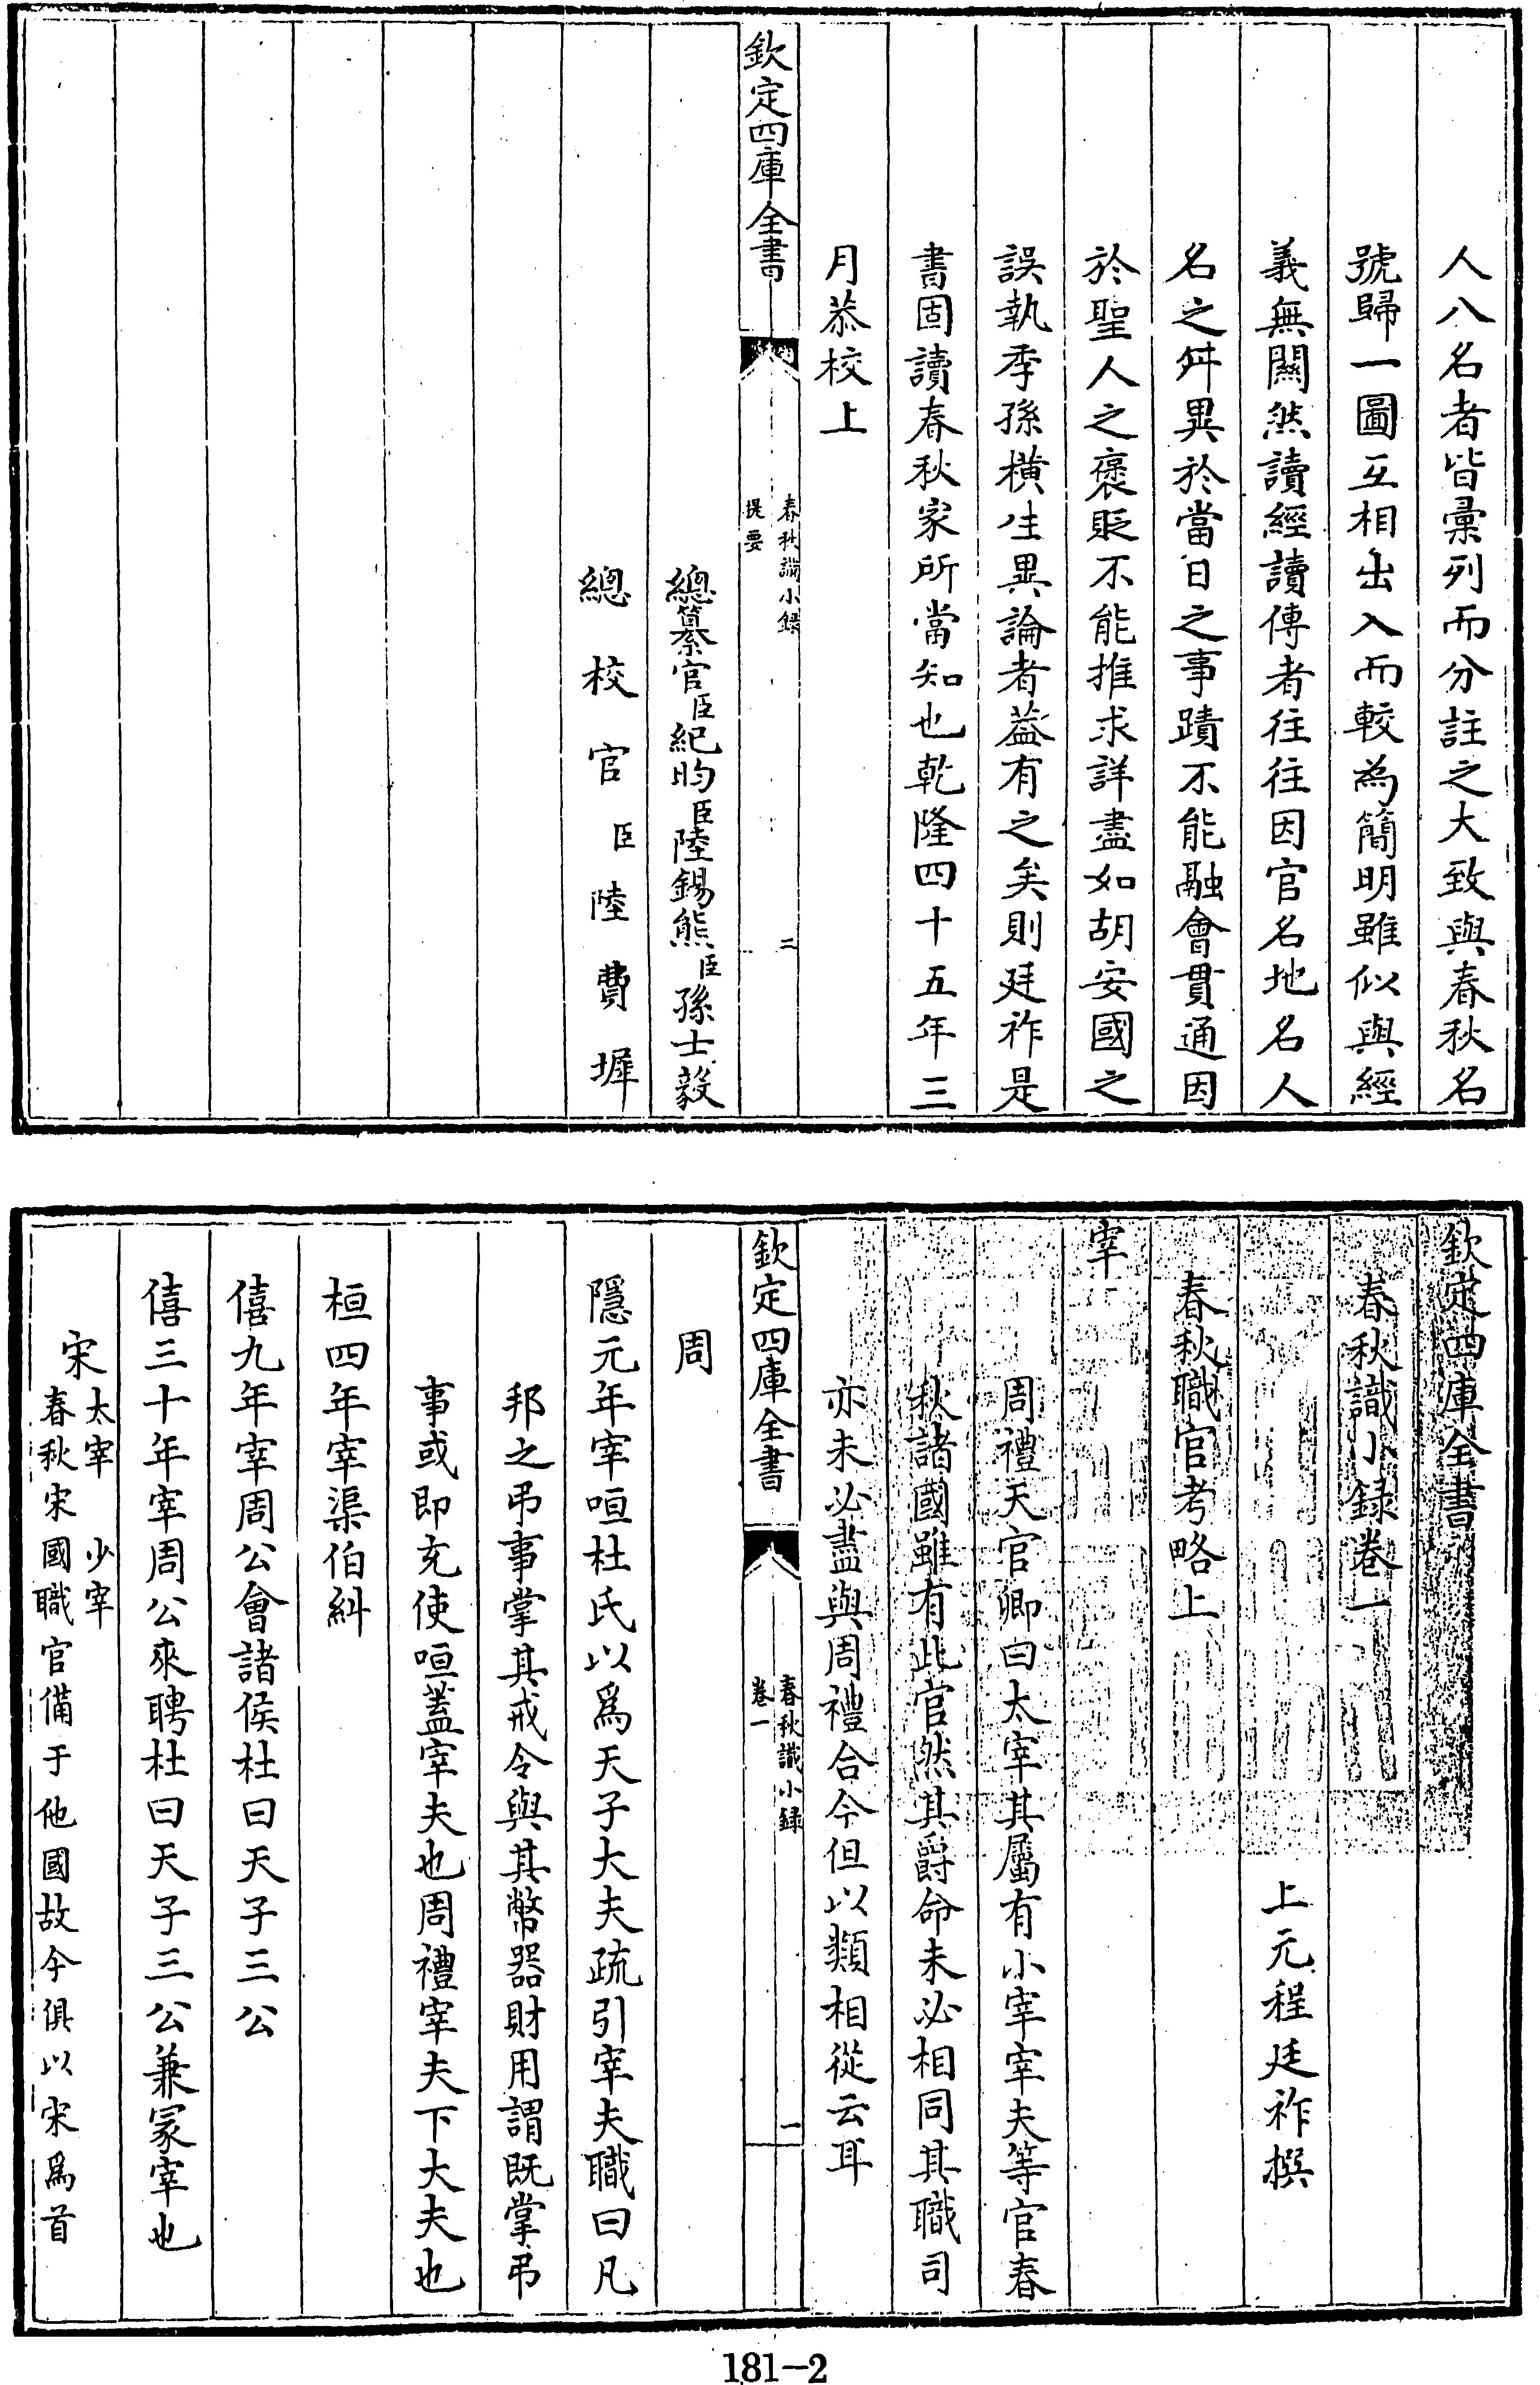 人八名者皆彙列而分註之大致與春秋名
號歸一圖互相出入而較為簡明雖似與經
義無關然讀經讀傳者往往因官名地名人
名之舛異於當日之事蹟不能融會貫通因
於聖人之褒貶不能推求詳盡如胡安國之
誤執季孫橫生異論者葢有之矣則廷祚是
書固讀春秋家所當知也乾隆四十五年三
月恭校上
欽定四庫全書
春秋識小録
提要
二
總纂官臣紀昀臣陸錫熊臣孫士毅
總校官臣陸費墀
欽定四庫全書
春秋識小録卷一
上元程廷祚撰
春秋職官考略上
宰
周禮天官卿曰太宰其屬有小宰宰夫等官春
秋諸國雖有此官然其爵命未必相同其職司
亦未必盡與周禮合今但以類相從云耳
欽定四庫全書
春秋識小録
卷一
一
周
隱元年宰咺杜氏以爲天子大夫疏引宰夫職曰凡
邦之弔事掌其戒令與其幣器財用謂既掌弔
事或即充使咺蓋宰夫也周禮宰夫下大夫也
桓四年宰渠伯糾
僖九年宰周公會諸侯杜曰天子三公
僖三十年宰周公來聘杜曰天子三公兼冢宰也
宋
太宰 少宰
春秋宋國職官備于他國故今俱以宋爲首
181-2